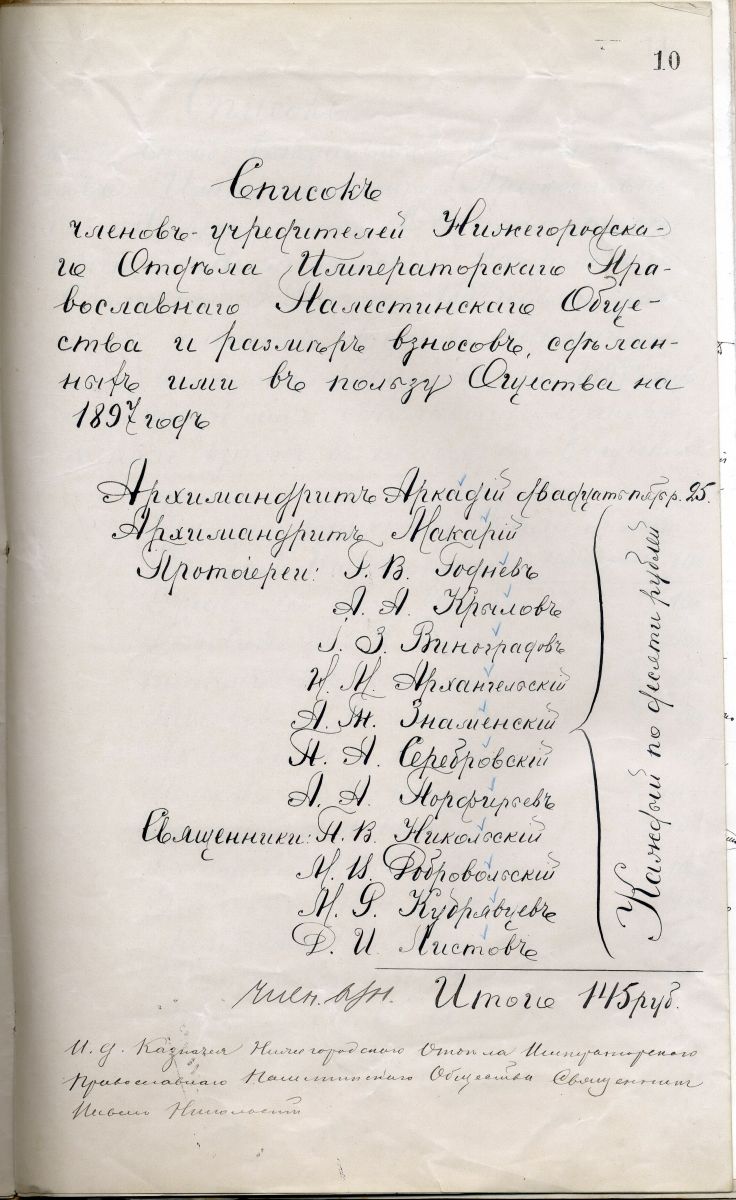 10
Списокъ
членовъ-учредителей Нижегородска-
го Отдѣла Императорскаго Пра-
вославнаго Палестинскаго Обще-
ства и размѣръ взносовъ, сдѣлан-
ныхъ ими въ пользу Ощества на
1897 годъ
Архимандритъ Аркадій двадцать пять р. 25.
Архимандритъ Макарій
Протоіереи: Г. В. Годневъ
А. А. Крыловъ
І. З. Виноградовъ
Н. М. Архангельскій
А. Знаменскій
П. А. Серебровскій
А. П. Порфирьевъ
Священники: П. В. Никольскій
М. И. Добровольскій
М. Кудрявцевъ
Д. И. Листовъ
Каждый по десяти рублей
член. Итого 145 руб.
И. д. Казначея Нижегородского Отдѣла Императорского
Православнаго Палестинскаго Общества Священникъ
Павелъ Никольскій